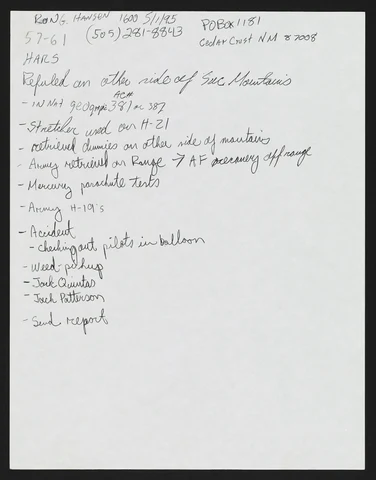 RON G. HANSEN 1600 5/1/95
57-61 (505) 281-8843
PO Box 1181
Cedar Crest NM 87008
HARS
Refuled on other side of Sac Mountains
- IN Nat geographic 381 or 387
ACM
- Stretcher used on H-21
- retrieved dummies on other side of mountains
- Army retrieved on Range → AF recovery off range
- Mercury parachute tests
- Army H-19's
- Accident
- checking out pilots in balloon
- Weed - pickup
- Jack Quintas
- Jack Patterson
- Send report